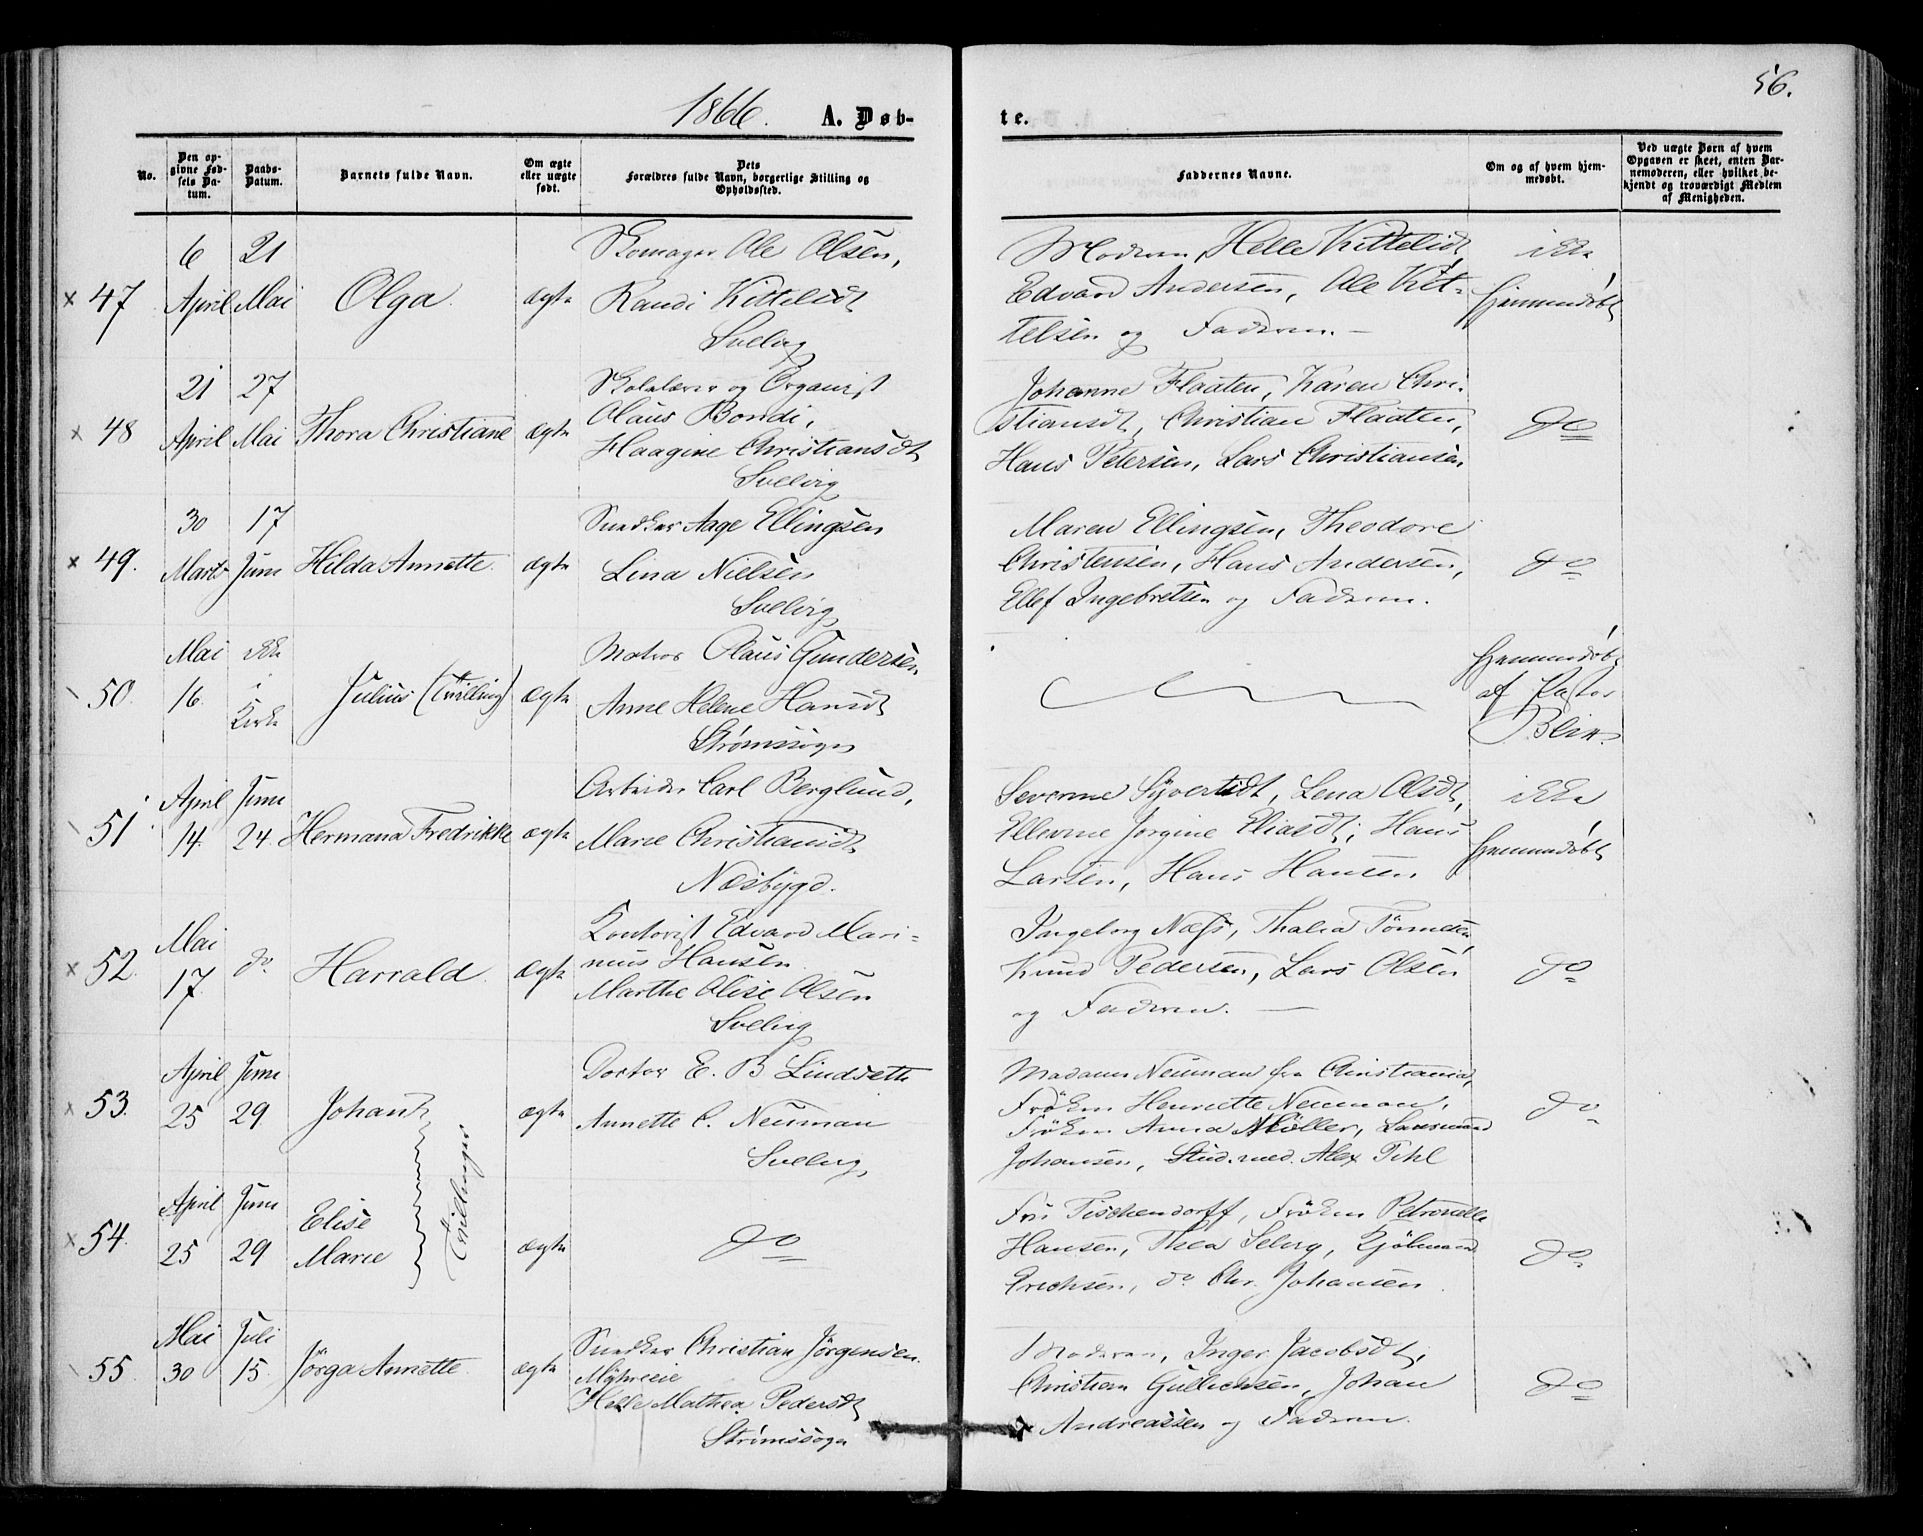 56.
1866. A. Døb-
te.
No.
Den op-
givne Fød-
sels Da-
tum.
Daabs-
Datum.
Barnets fulde Navn.
Om ægte
eller uægte
født.
Dets
Forældres fulde Navn, borgerlige Stilling og
Opholdssted.
Faddernes Navne.
Om og af hvem hjem-
medøbt.
Ved uægte Børn af hvem
Opgaven er skeet, enten Bar-
nemoderen, eller hvilket be-
kjendt og troværdigt Medlem
af Menigheden.
× 47
6
April
21
Mai
Olga.
ægte
Skomager Ole Olsen,
Randi Kittelsdt
Svelvig
Moderen, Helle Kittelsdt,
Edvard Andersen, Ole Kit-
telsen og Faderen. —
ikke
hjemmedøbt
× 48
21
April
27
Mai
Thora Christiane
ægte
Skolelærer og Organist
Olaus Bondi,
Haagine Christiansdt
Svelvig
Johanne Flaaten, Karen Chri-
stiansdt, Christian Flaaten,
Hans Petersen, Lars Christiansen
do
× 49.
30
Marts
17
Juni
Hilda Annette.
ægte
Snedker Aage Ellingsen
Lina Nielsen
Svelvig
Maren Ellingsen, Theodore
Christensen, Hans Andersen,
Ellef Ingebretsen og Faderen.
do
50.
Mai
16.
ikke
i
Kirke
Julius (Tvilling)
ægte
Matros Olaus Gundersen
Anne Helene Hansdt
Strømssogn
hjemmedøbt
af Pastor
Blix.
51
April
14.
Juni
24.
Hermana Fredrikke
ægte
Arbeider Carl Berglund,
Maree Christiansdt
Næsbygd.
Severine Syvertsdt, Lena Olsdt,
Ellevine Jørgine Eliasdt, Hans
Larsen, Hans Hansen
ikke
hjemmedøbt
× 52.
Mai
17.
do
Harrald.
ægte
Kontorist Edvard Mari-
nius Hansen
Marthe Olise Olsen
Svelvig
Ingeborg Næss, Thalia Tønnesen,
Knud Pedersen, Lars Olsen
og Faderen. —
do
× 53.
April
25
Juni
29
Johan
Tvillinger
ægte
Doctor E. B Lindseth
Annette C. Neuman
Svelvig
Madam Neuman fra Christiania,
Frøken Henriette Neuman,
Frøken Anna Møller,
Johansen, Stud. med. Alex Pihl
do
× 54.
April
25
Juni
29
Elise
Marie
ægte
do
Fru Tischendorff, Frøken Petronelle
Hansen, Thea Selvig, Kjøbmand
Erichsen, do Chr. Johansen
do
55
Mai
30
Juli
15.
Jørga Annette.
ægte
Snedker Christian Jørgensen
Myhreeie
Helle Mathea Pedersdt
Strømssogn
Moderen, Inger Jacobsdt,
Christian Gullichsen, Johan
Andreassen og Faderen.
do